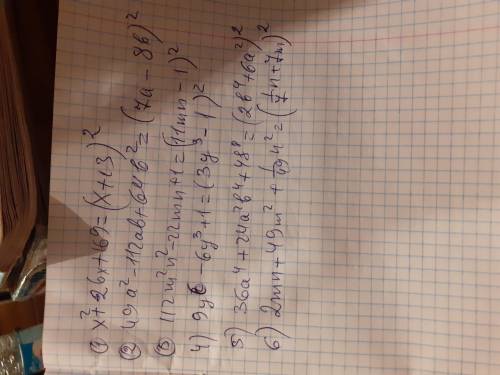 ① x²+26x+169=(x+13)²
② 49a²-112ab+64b²=(7a-8b)²
③ 112m²n²-22mn+1=(11mn-1)²
4) 9y⁶-6y³+1=(3y³-1)²
5) 36a⁴+24a²b⁴+4b⁸=(2b⁴+6a²)²
6) 2mn+49m²+1/49n²=(1/7n+7m)²